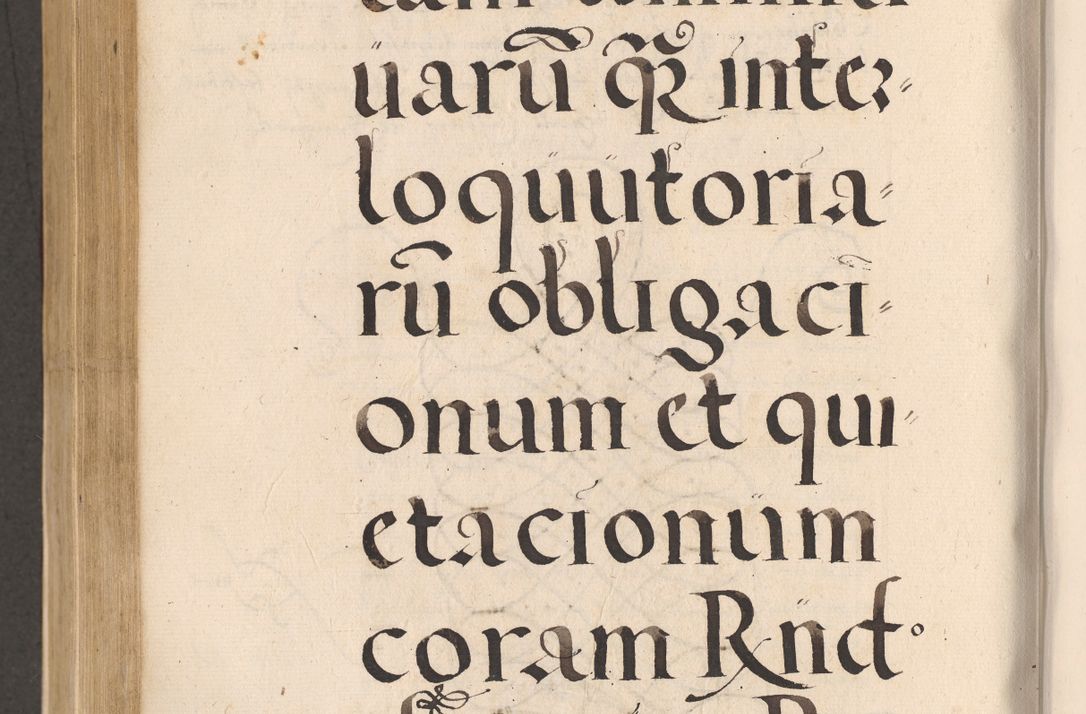 uarũ qR̃ inter-
loquutoria-
rũ obligaci-
onum et qui-
etacionum
coram Rnd°